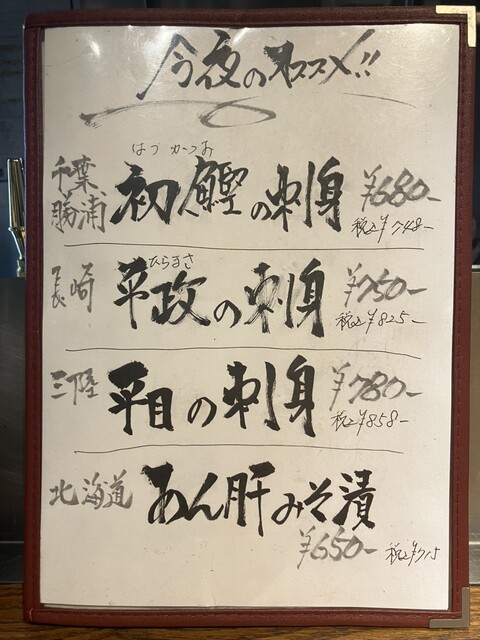 今夜のオススメ!!
はつ かつお
千葉、勝浦 初鰹の刺身 ¥680-
税込¥748-
ひらまさ
長崎 平政の刺身 ¥750-
税込¥825-
三陸 平目の刺身 ¥780-
税込¥858-
北海道 あん肝みそ漬
¥650- 税込¥715